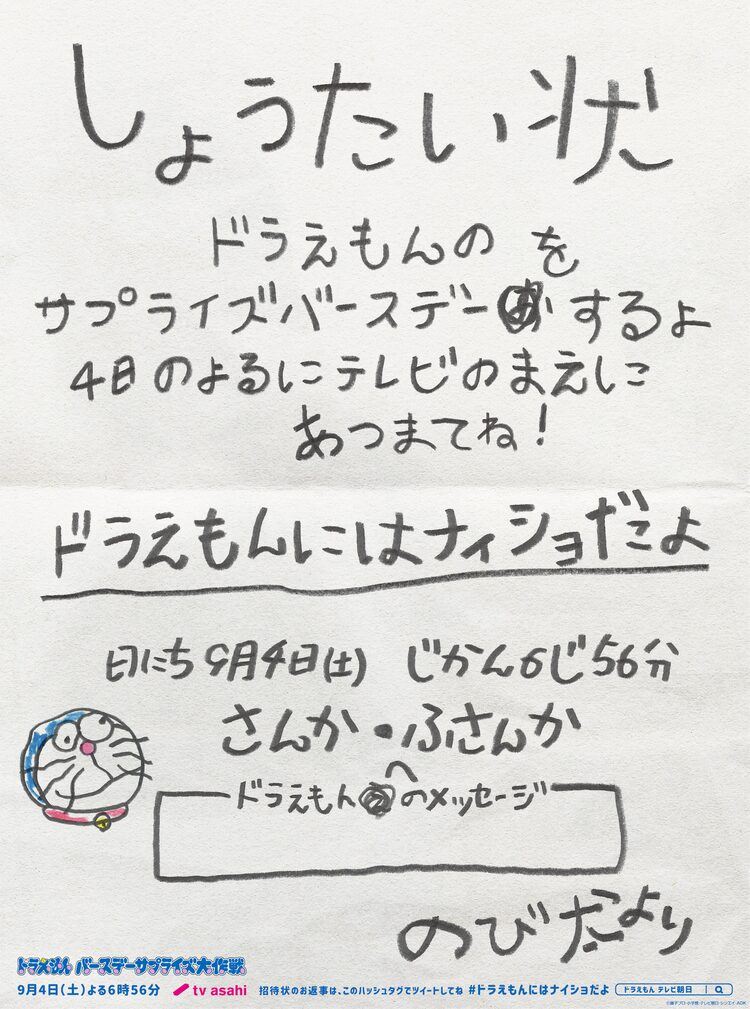 しょうたい状
ドラえもんの を
サプライズバースデー するよ
4日のよるにテレビのまえに
あつまてね!
ドラえもんにはナイショだよ
日にち 9月4日(土) じかん6じ56分
さんか・ふさんか
ドラえもん へ のメッセージ
のびたより
ドラえもん バースデーサプライズ大作戦
9月4日(土)よる6時56分
tv asahi
招待状のお返事は、このハッシュタグでツイートしてね #ドラえもんにはナイショだよ
ドラえもん テレビ朝日
©藤子プロ・小学館・テレビ朝日・シンエイ・ADK